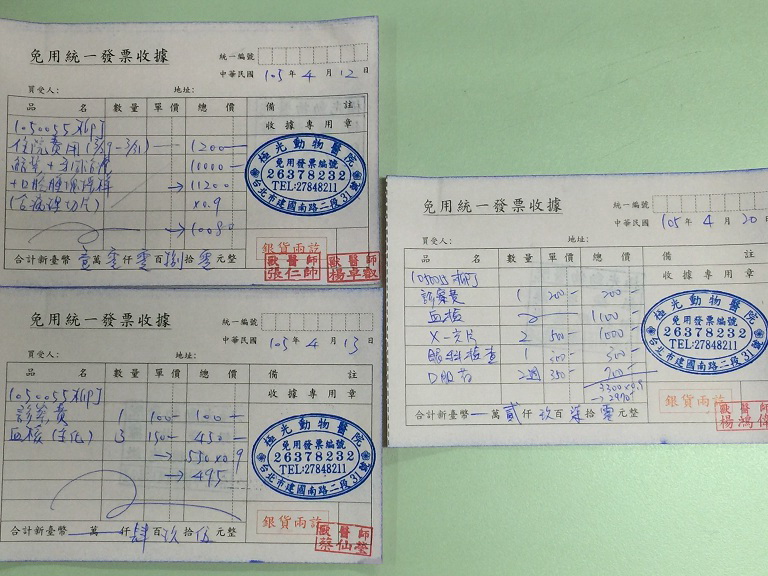 免用統一發票收據
統一編號
中華民國 105 年 4 月 12 日
買受人： 地址：
品名 數量 單價 總價 備註
收據專用章
1050055
住院費用 1200
10000
→ 11200
x0.9
(含病理切片)
→ 10080
極光動物醫院
免用發票編號
26378232
TEL:27848211
台北市建國南路二段31號
銀貨兩訖
獸醫師 張仁帥
獸醫師 楊卓叡
合計新臺幣 壹萬零仟零百捌拾零元整
免用統一發票收據
統一編號
中華民國 105 年 4 月 13 日
買受人： 地址：
品名 數量 單價 總價 備註
收據專用章
1050055
診察費 1 100 100
血檢(生化) 3 150 450
→ 550x0.9
→ 495
極光動物醫院
免用發票編號
26378232
TEL:27848211
台北市建國南路二段31號
銀貨兩訖
獸醫師 蔡仙瑩
合計新臺幣 萬 仟肆百玖拾伍元整
免用統一發票收據
統一編號
中華民國 105 年 4 月 20 日
買受人： 地址：
品名 數量 單價 總價 備註
收據專用章
診察費 1 200 200
血檢 1100
X-光片 2 500 1000
眼科檢查 1 500 500
3300x0.9
→ 2970
極光動物醫院
免用發票編號
26378232
TEL:27848211
台北市建國南路二段31號
銀貨兩訖
獸醫師 楊鴻偉
合計新臺幣 萬貳仟玖百柒拾零元整